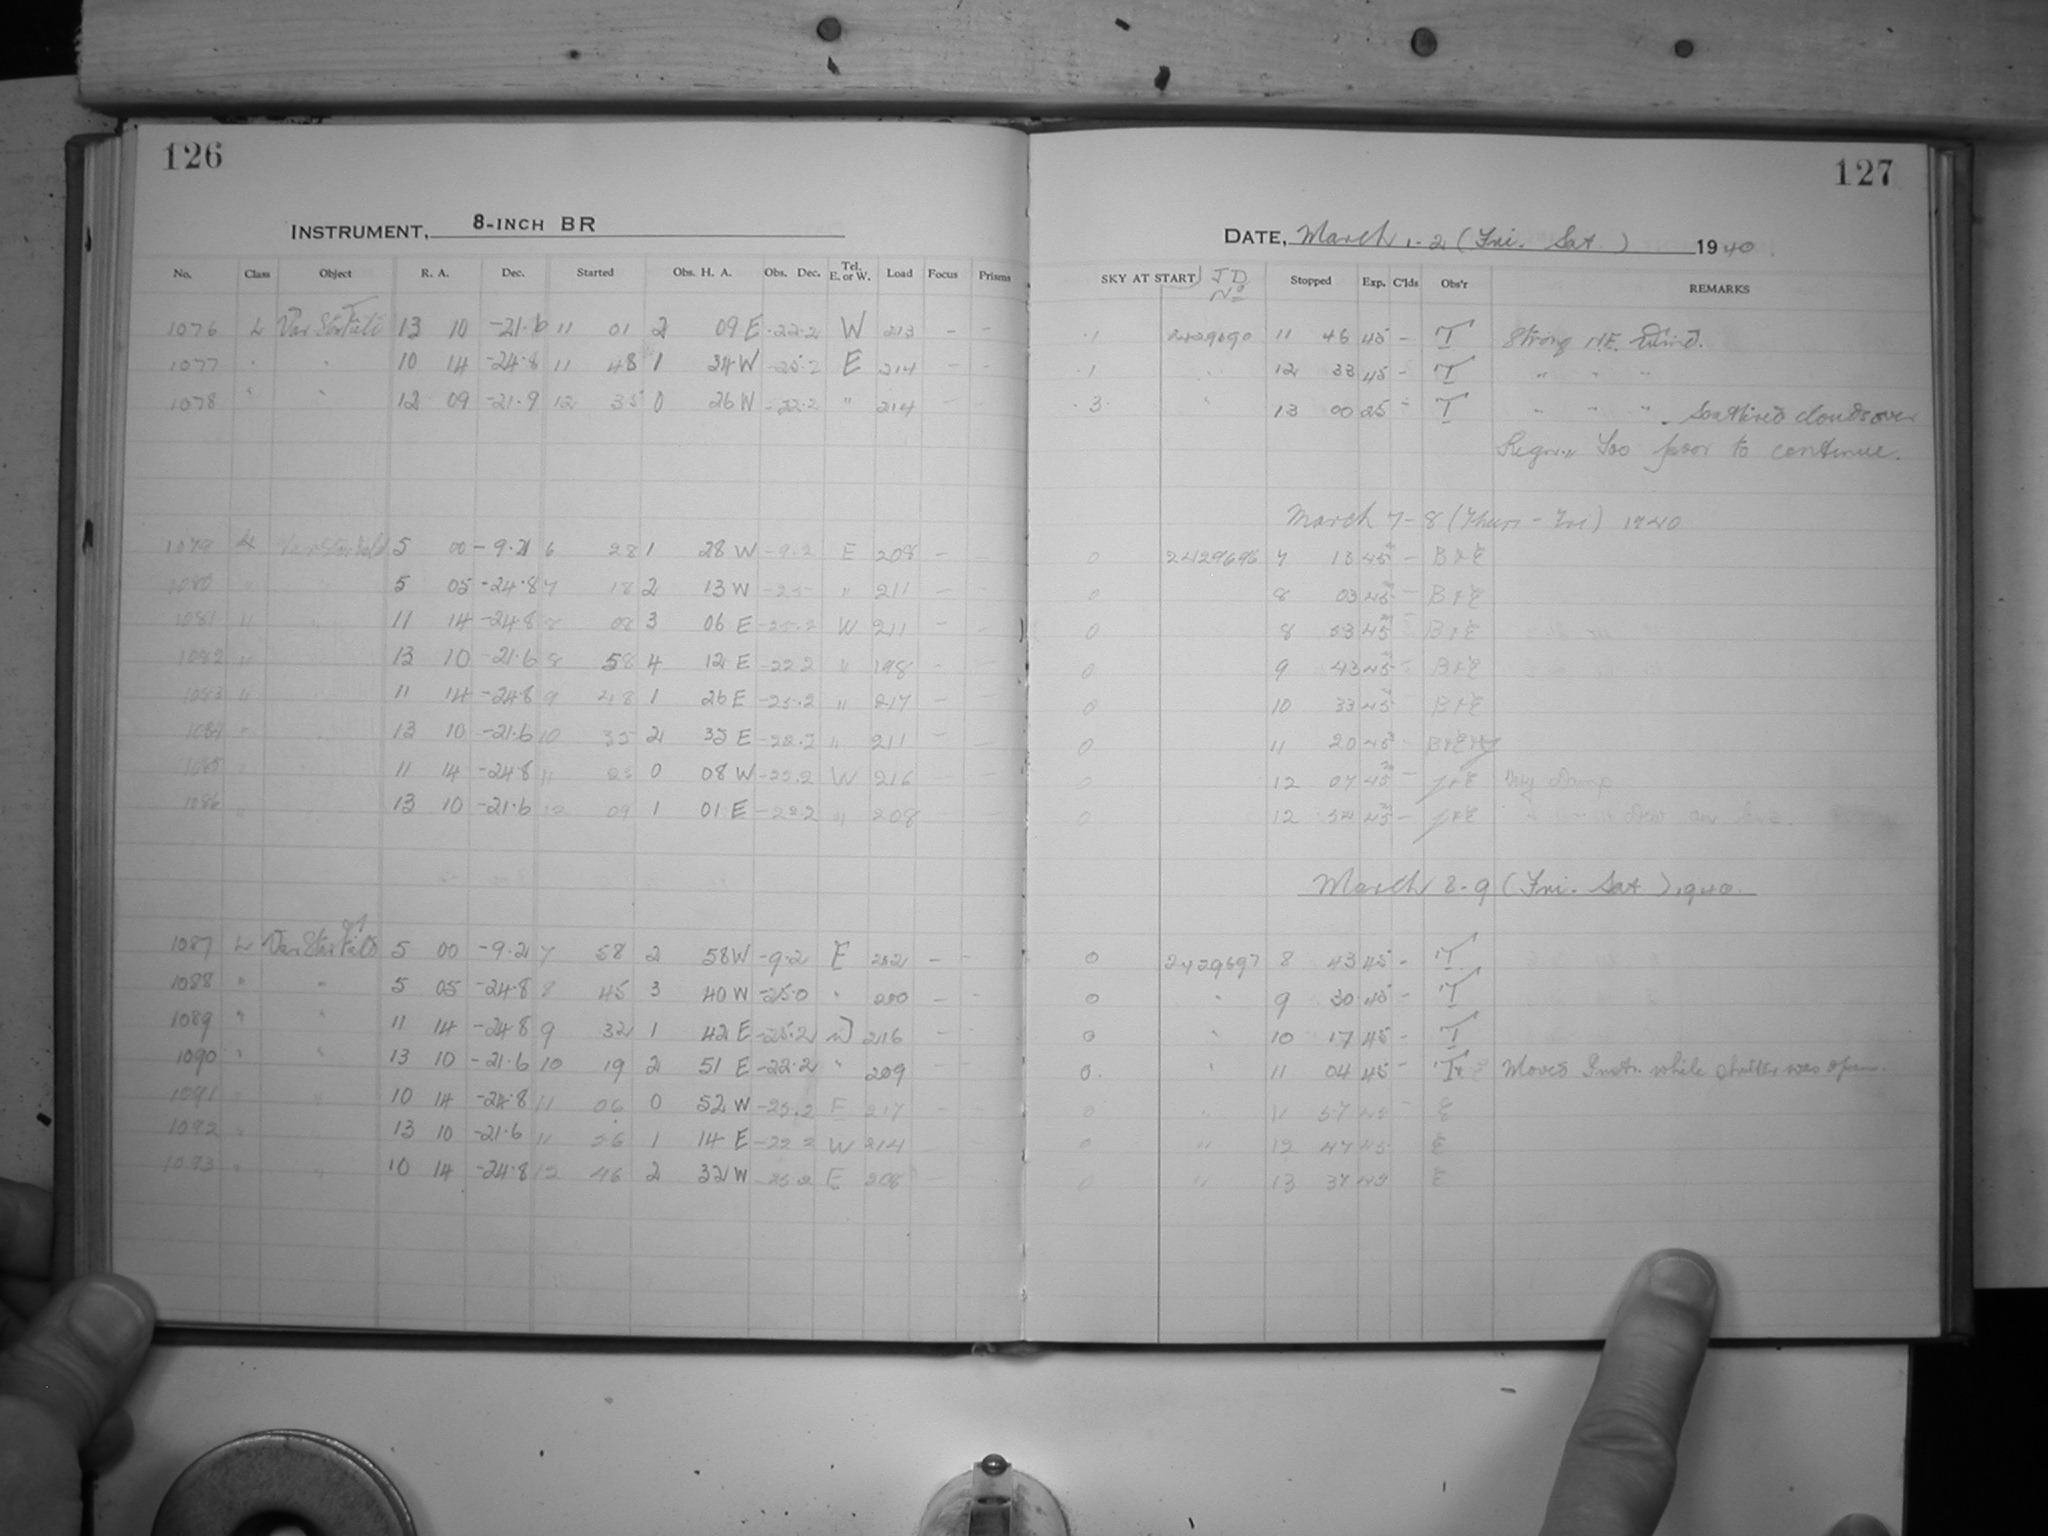 126
127
INSTRUMENT, 8-INCH BR
DATE, March 1-2 (Fri. Sat.) 1940
No. Class Object R. A. Dec. Started Obs. H. A. Obs. Dec. Tel. E. or W. Load Focus Prisms SKY AT START JD No Stopped Exp. C'lds Obs'r REMARKS
1076 L Var Star Field 13 10 -21.6 11 01 2 09 E -22.2 W 213 - - .1 11 46 45 - T Strong N.E. Wind.
1077 " " 10 14 -24.8 11 48 1 34 W -25.2 E 214 - - .1 " 12 33 45 - T " " "
1078 " " 12 09 -21.9 12 35 0 26 W -22.2 " 214 - - .3 " 13 00 25 - T " " " Scattered clouds over
Region Too poor to continue.
March 7-8 (Thurs - Fri) 1940
1079 5 00 -9.2 6 28 1 28 W -9.2 E 208 - - 0 2429696 7 13 45 - B+E
1080 " 5 05 -24.8 7 18 2 13 W -25 " 211 - - 0 8 03 45 - B+E
1081 " " 11 14 -24.8 8 08 3 06 E -25.2 W 211 - - 0 8 53 45 - B+E
1082 " " 13 10 -21.6 8 58 4 12 E -22.2 " 198 - 0 9 43 45 - B+E
1083 " " 11 14 -24.8 9 48 1 26 E -25.2 " 217 - - 0 10 33 45 B+E
1084 " " 13 10 -21.6 10 35 2 35 E -22.2 " 211 - - 0 11 20 45
1085 " " 11 14 -24.8 11 0 08 W -25.2 W 216 - 0 12 07 45 - J+E Very Damp
1086 " " 13 10 -21.6 12 09 1 01 E -22.2 " 208 - - 0 12 54 45 - J+E Dew on
March 8-9 (Fri. Sat.) 1940.
1087 L Var Star Field 5 00 -9.2 7 58 2 58 W -9.2 E - - 0 2429697 8 43 45 - T
1088 " " 5 05 -24.8 8 45 3 40 W -25.0 " 200 - - 0 " 9 30 45 - T
1089 " " 11 14 -24.8 9 32 1 42 E -25.2 W 216 - - 0 " 10 17 45 - T
1090 " " 13 10 -21.6 10 19 2 51 E -22.2 " 209 - - 0. " 11 04 45 - Moved Instr. while shutter was open.
1091 " " 10 14 -24.8 11 06 0 52 W -25.2 E 217 - - 0 " 11 57 45 - E
1092 " 13 10 -21.6 11 56 1 14 E -22.2 W 214 - 0 " 12 47 45 E
1093 " " 10 14 -24.8 12 46 2 32 W -25.2 E 208 - 0 " 13 37 45 E